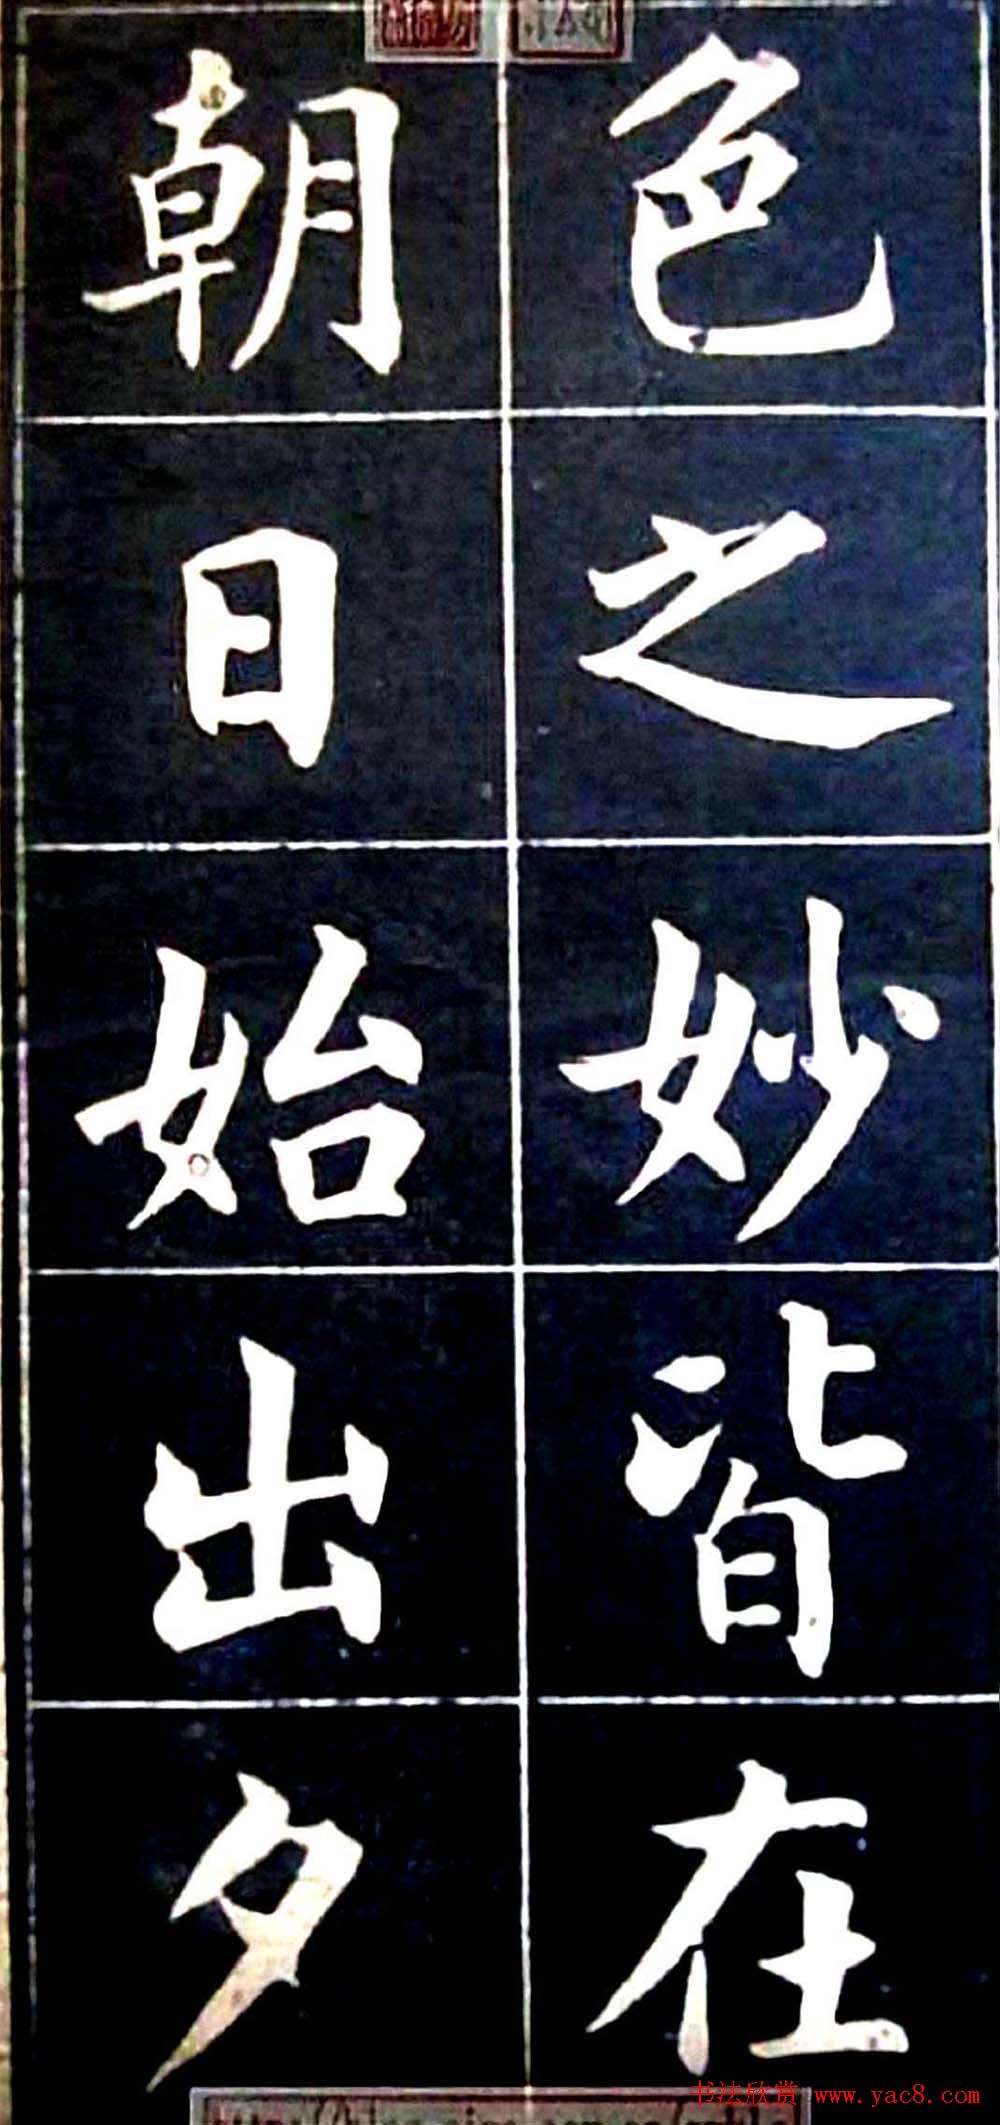 色之妙皆在
朝日始出夕
书法欣赏 www.yac8.com